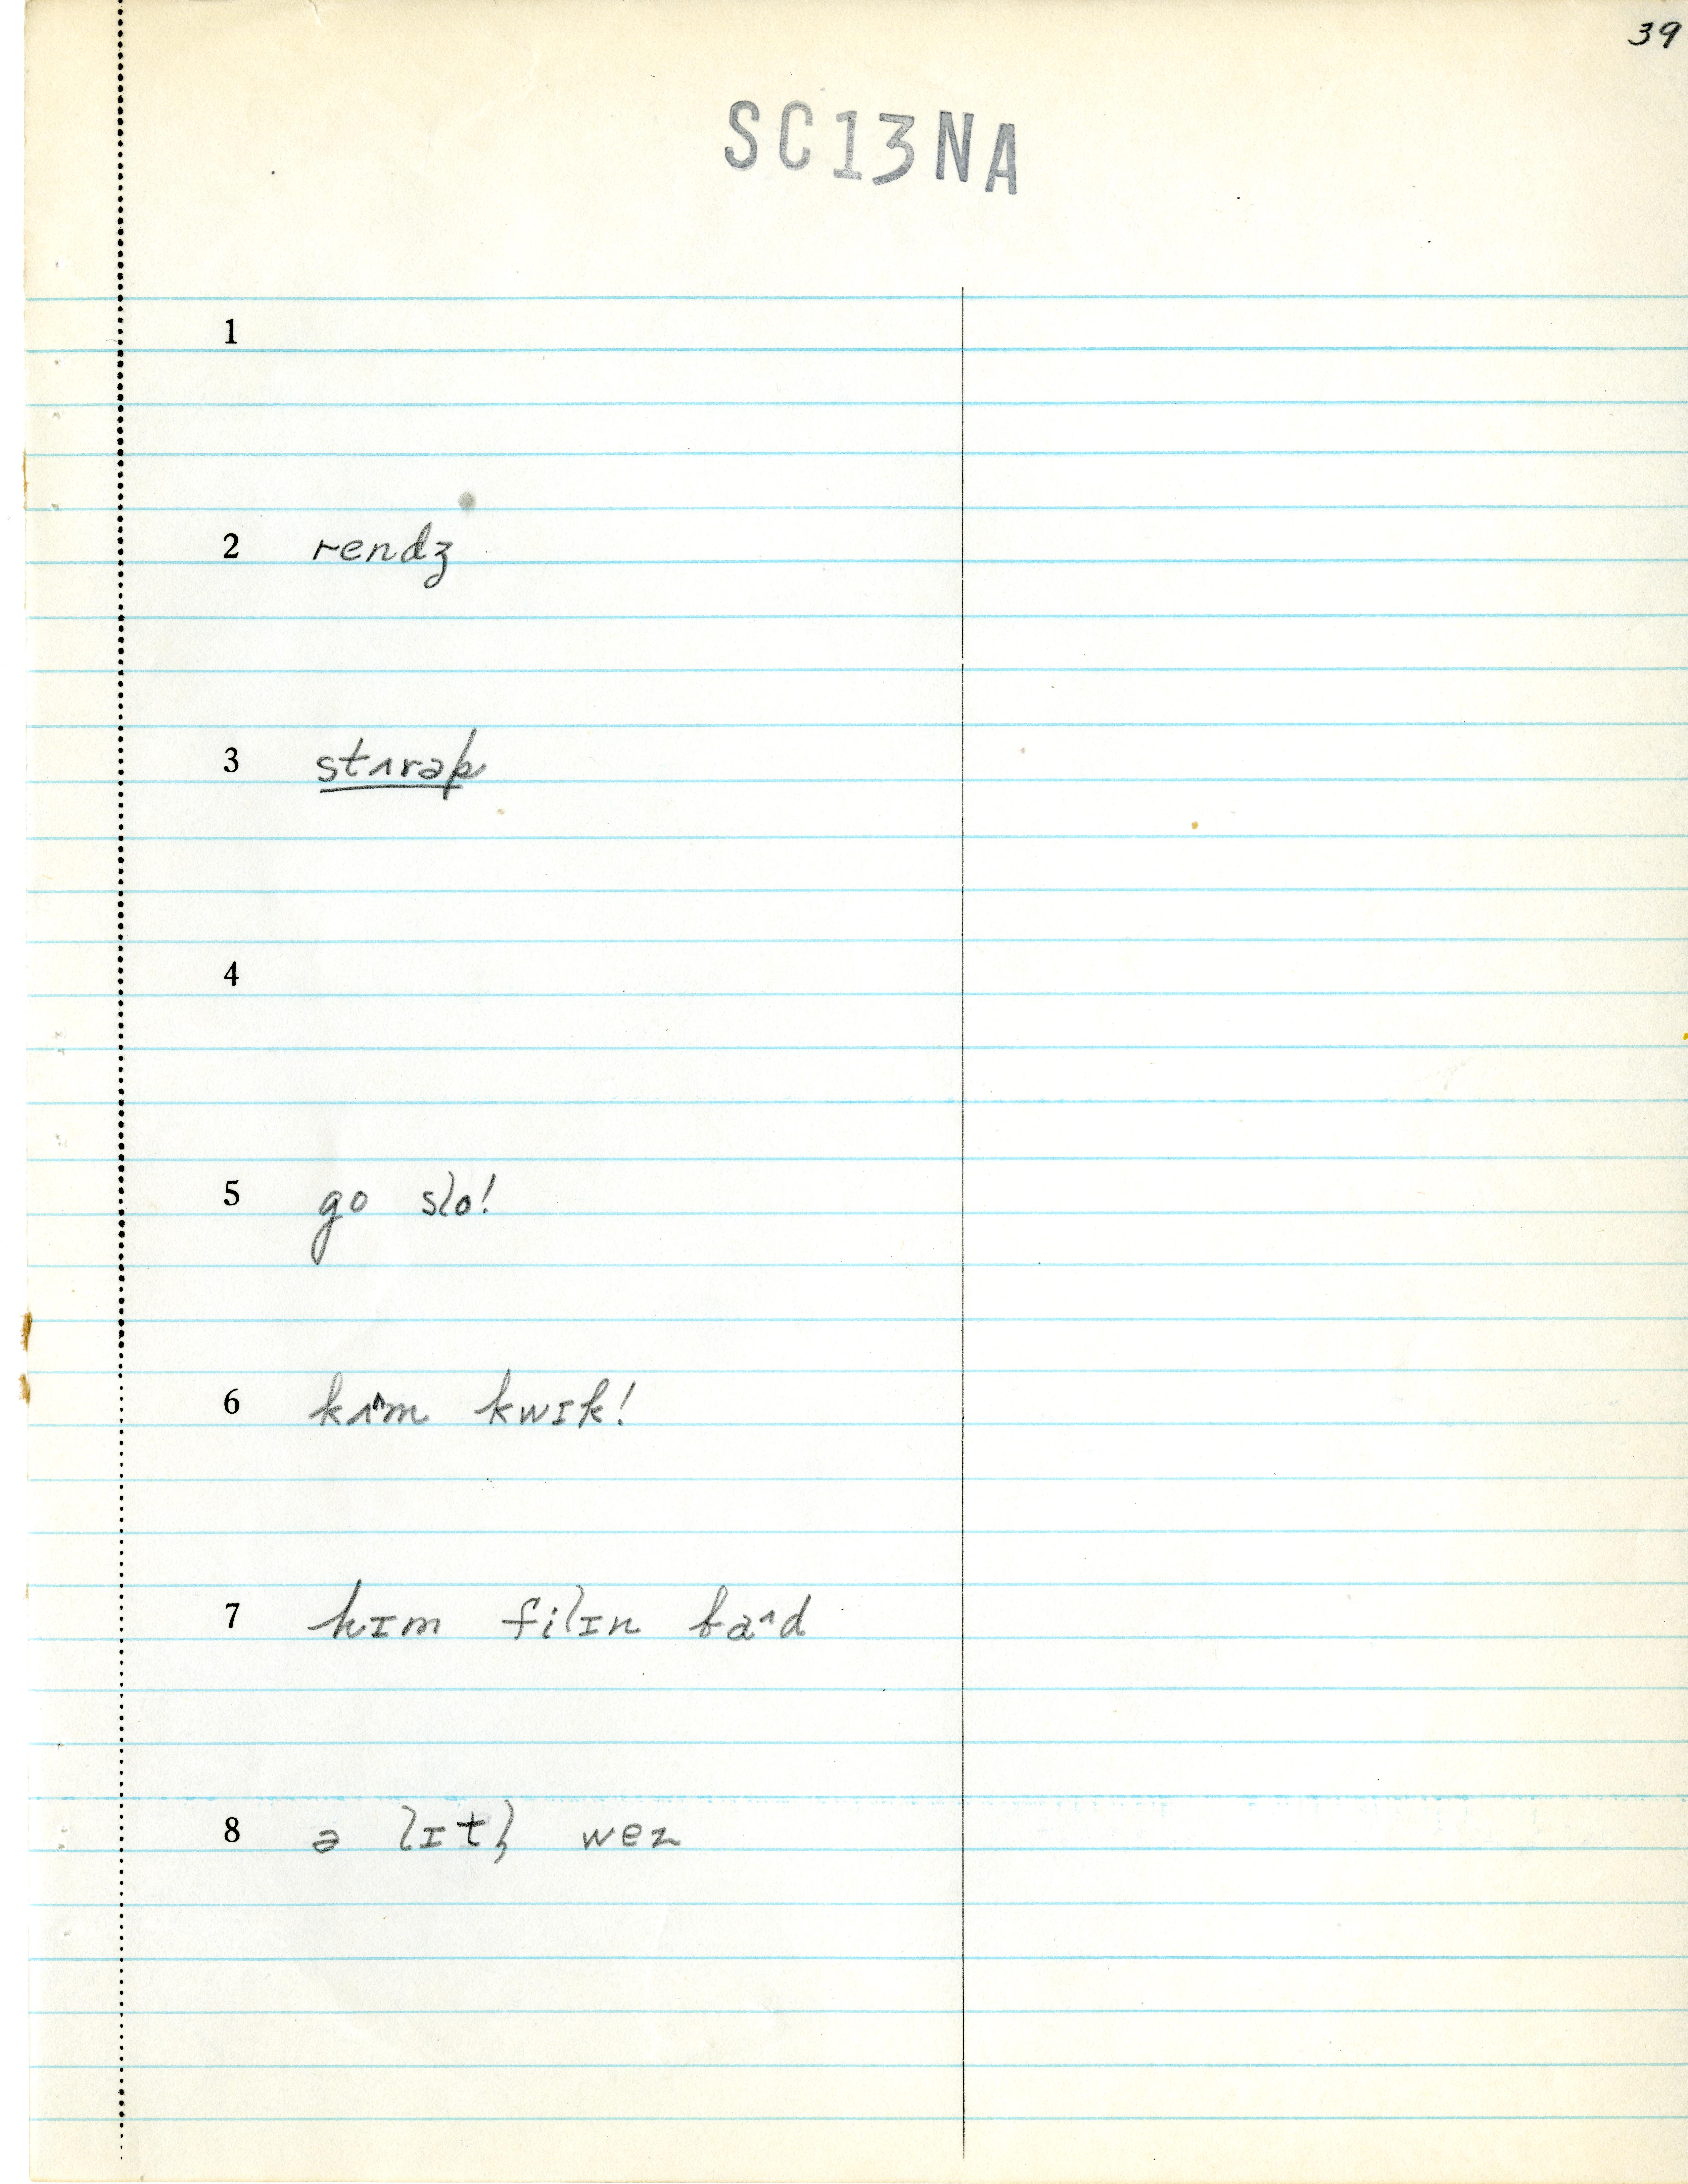 39
SC13NA
1
2 rendȥ
3 stʌrəp
4
5 go slo!
6 kʌ^m kwɪk!
7 hɪm filɪn ba^d
8 ə lɪtl̩ wez